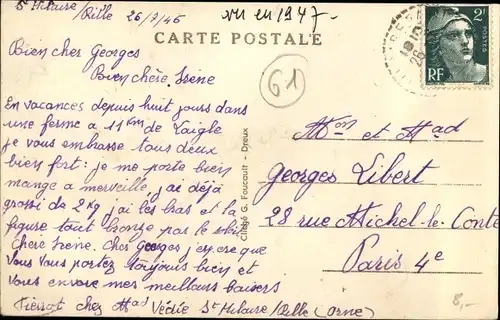 St Hilaire/Rille 26/7/46
vu en 1947-
CARTE POSTALE
Bien cher Georges
Bien chère Irène
61
En vacances depuis huit jours dans
une ferme a 11Km de Laigle
je vous embrasse tous deux
bien fort: je me porte bien
mange a merveille, j'ai déjà
grossi de 2Kg j'ai les bras et la
figure tout bronzé par le soleil
Chère Irène. Cher Georges j'espère que
Vous vous portez toujours bien et
Vous envoie mes meilleurs baisers
Pierrot chez Mad Védie St Hilaire/Rille (Orne)
Cliché R. Foucault - Dreux
2F
POSTES
RF
26
Mon et Mad
Georges Libert
28 rue Michel-le-Conte
Paris 4e
8,-